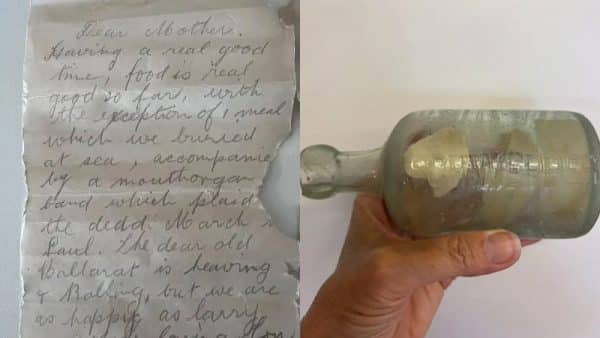 Dear Mother.
Having a real good
time, food is real
good so far, with
the exception of 1 meal
which we burried
at sea, accompanie
by a mouthorgan
band which plaid
the dedd March
Saul. The dear old
Ballarat is heaving
& Rolling, but we are
as happy as larry